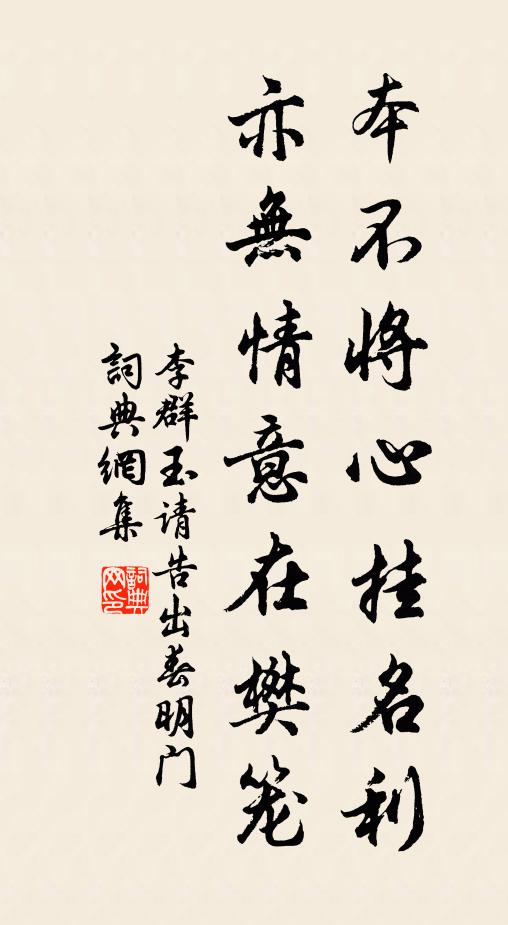 本不将心挂名利
亦無情意在樊笼
李群玉请告出春明门
詞典網集
詞典網印